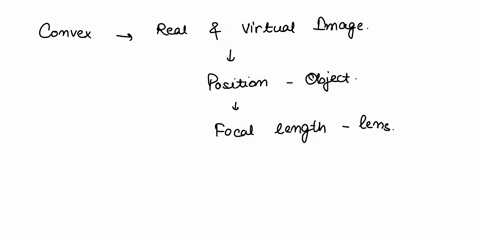 Convex → Real & Virtual Image.
↓
Position - Object.
↓
Focal length - lens.